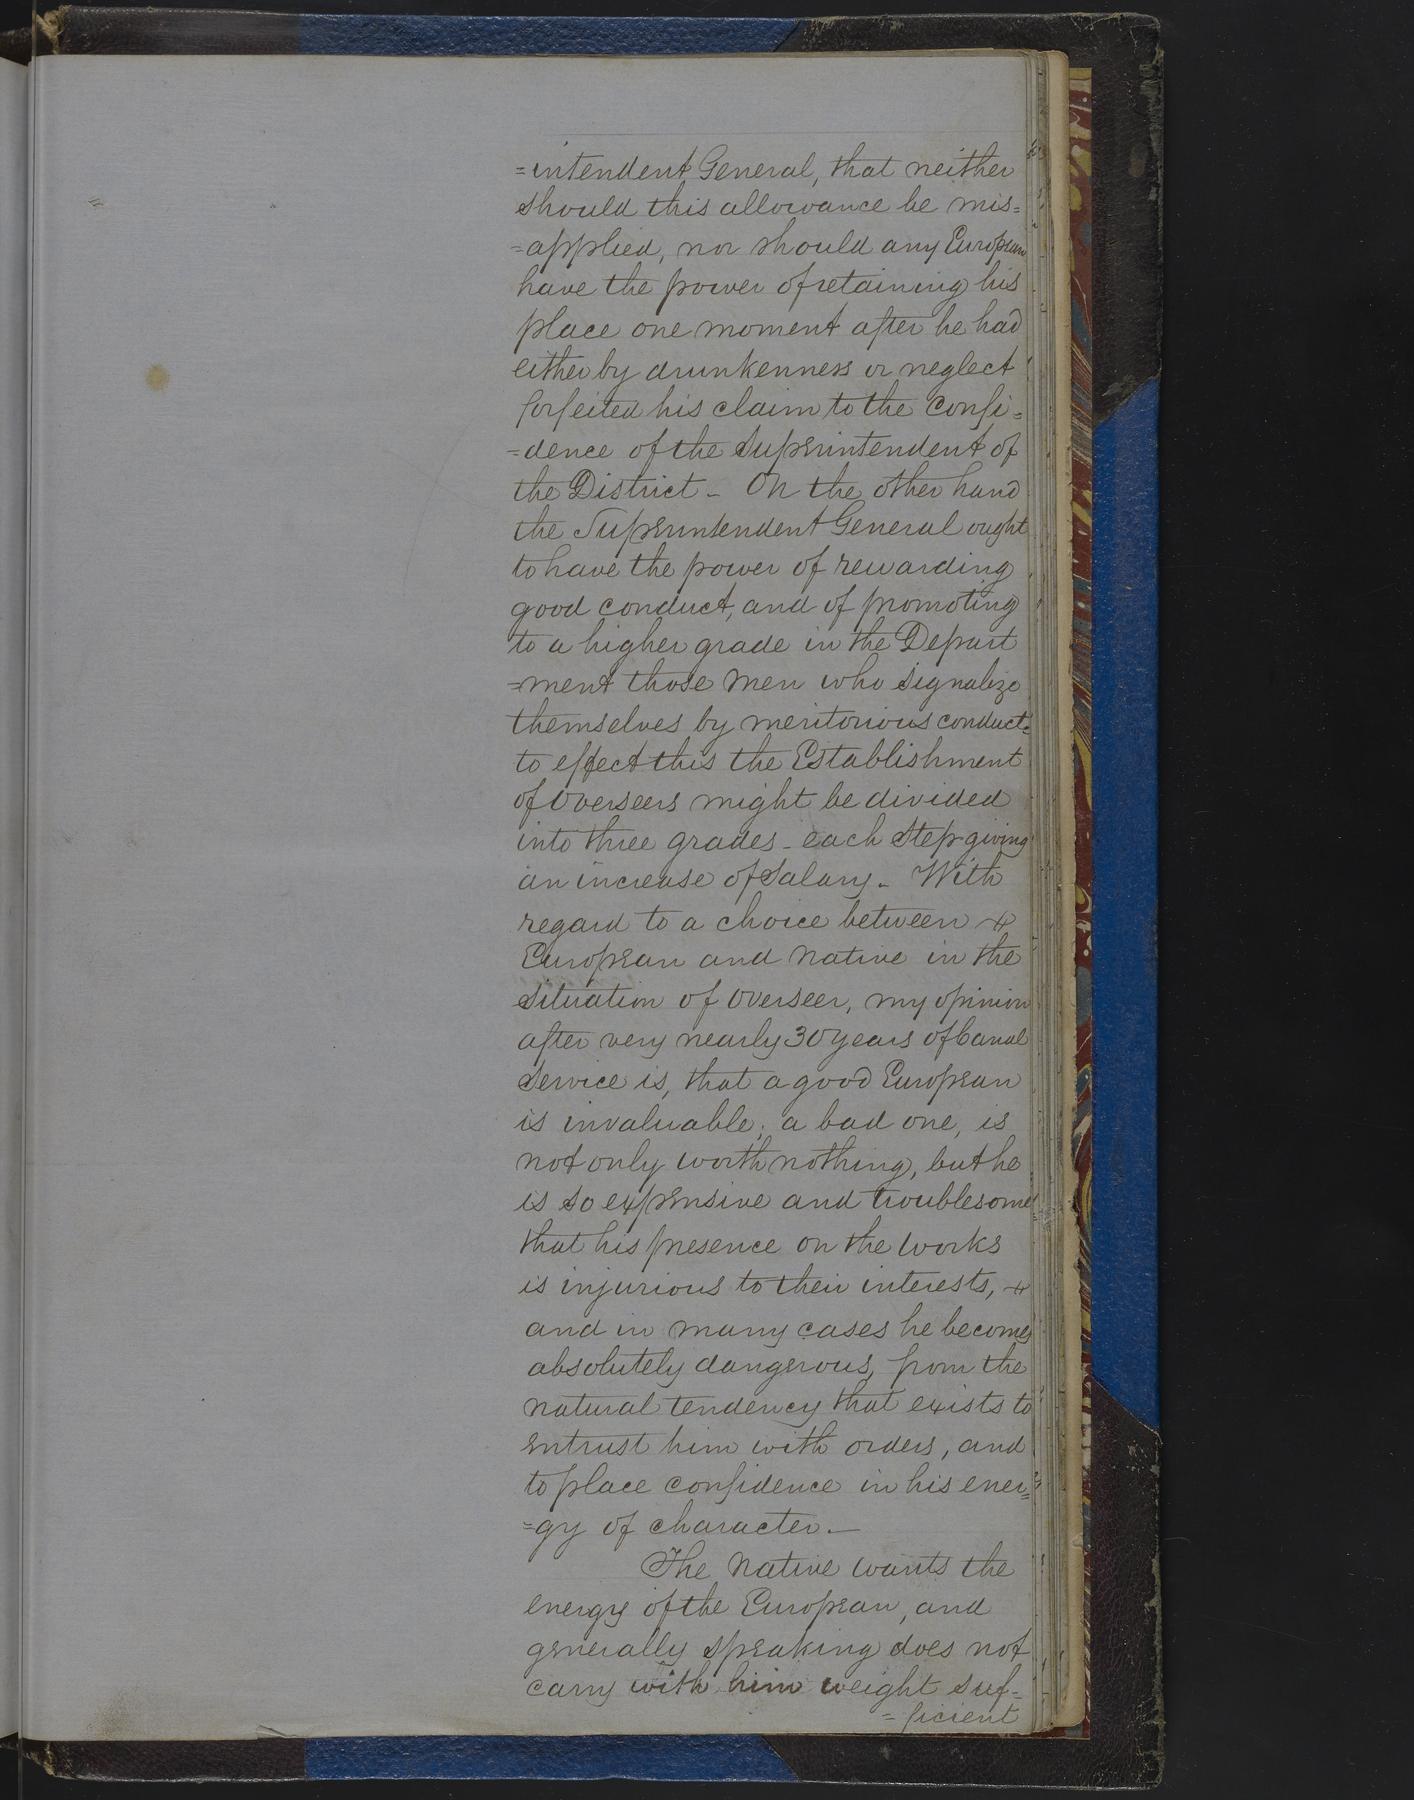 =intendent General, that neither
should this allowance be mis=
=applied, nor should any European
have the power of retaining his
place one moment after he had
either by drunkenness or neglect
forfeited his claim to the confi=
=dence of the Superintendent of
the District – On the other hand
the Superintendent General ought
to have the power of rewarding
good conduct, and of promoting
to a higher grade in the Depart
=ment those men who signalize
themselves by meritorious conduct.
to effect this the Establishment
of Overseers might be divided
into three grades – each step giving
an increase of salary – With
regard to a choice between
European and Native in the
situation of Overseer, my opinion
after very nearly 30 years of Canal
Service is, that a good European
is invaluable; a bad one, is
not only worth nothing, but he
is so expensive and troublesome
that his presence on the works
is injurious to their interests,
and in many cases he becomes
absolutely dangerous, from the
natural tendency that exists to
entrust him with orders, and
to place confidence in his ener=
=gy of character. –
The Native wants the
energy of the European, and
generally speaking does not
carry with him weight suf=
=ficient